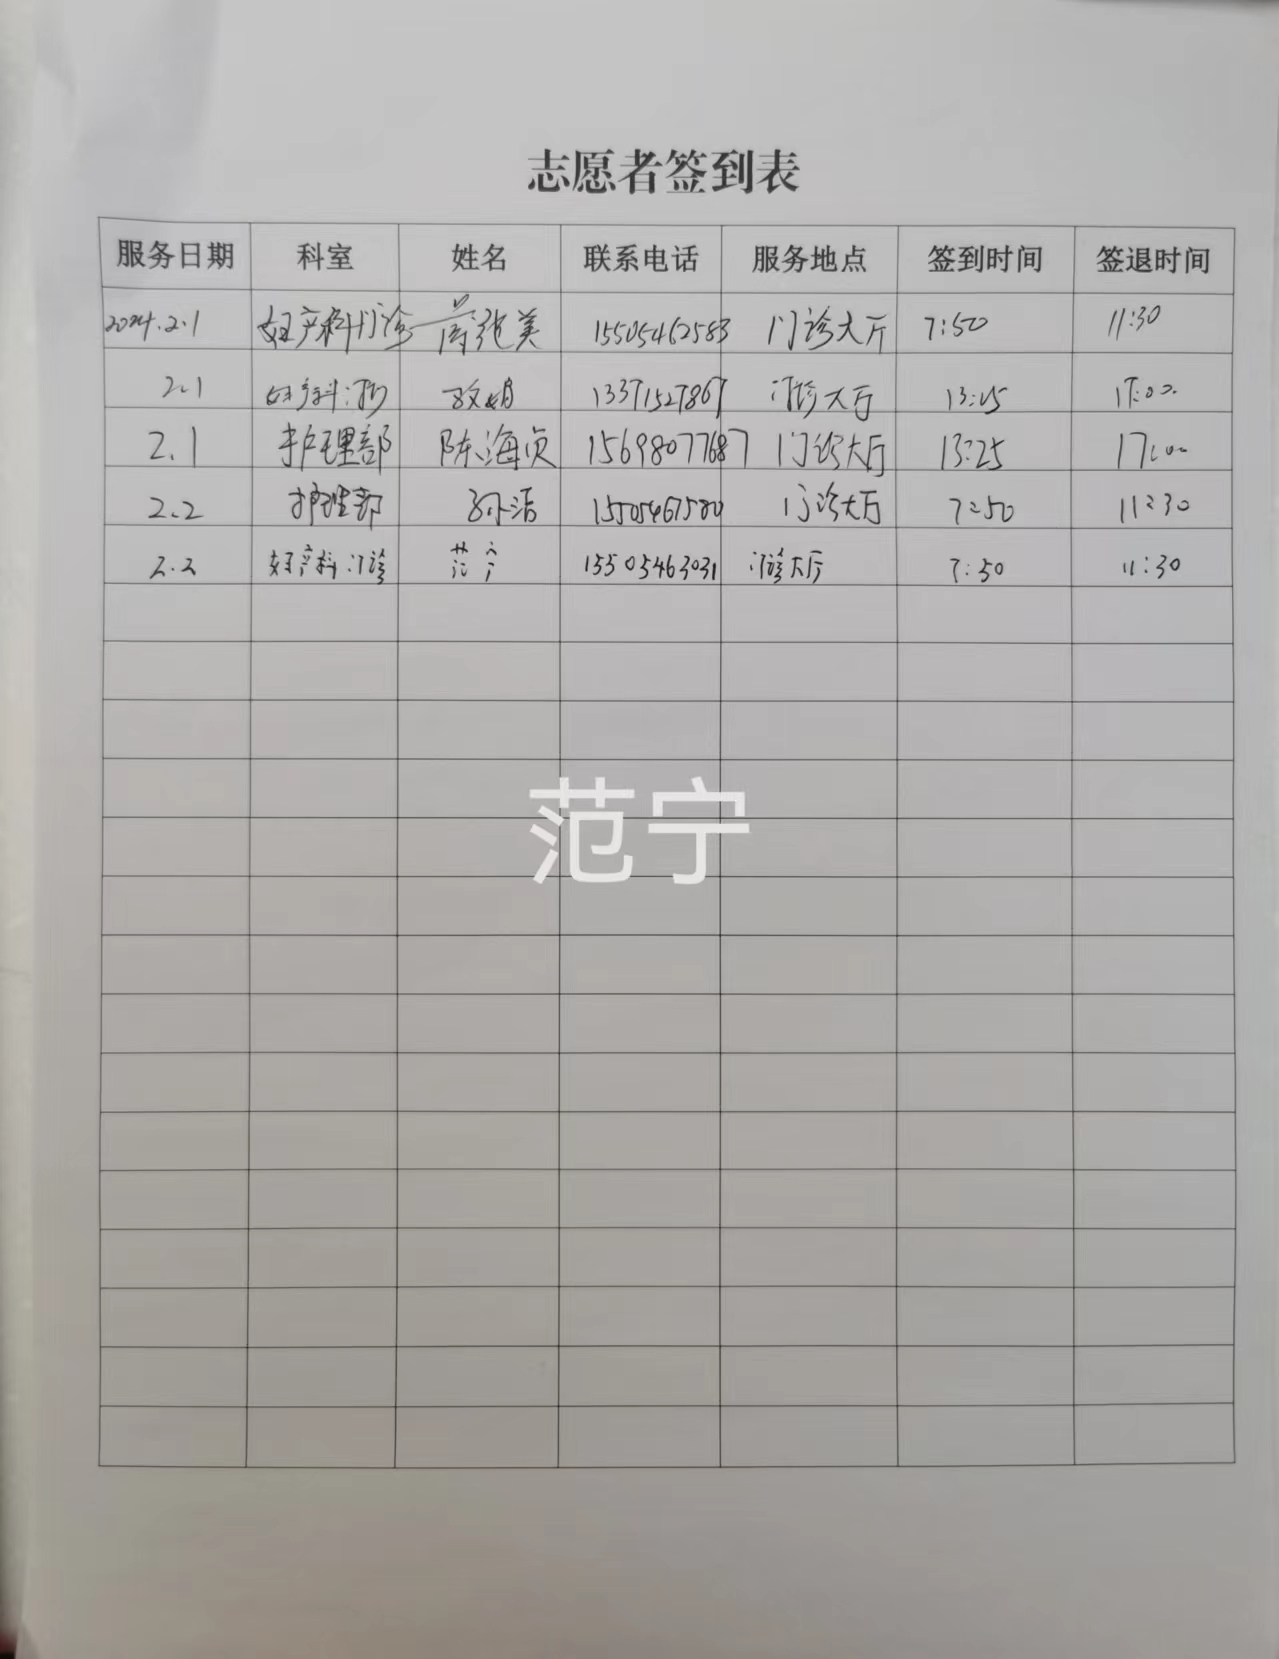 志愿者签到表
服务日期 科室 姓名 联系电话 服务地点 签到时间 签退时间
2024.2.1 妇产科门诊 张美 15505462583 门诊大厅 7:50 11:30
2.1 妇产科门诊 娟 13371527867 门诊大厅 13:25 17:00
2.1 护理部 陈海贞 15698077687 门诊大厅 13:25 17:00
2.2 护理部 孙洁 15505467580 门诊大厅 7:50 11:30
2.2 妇产科门诊 范宁 15505463031 门诊大厅 7:50 11:30
范宁